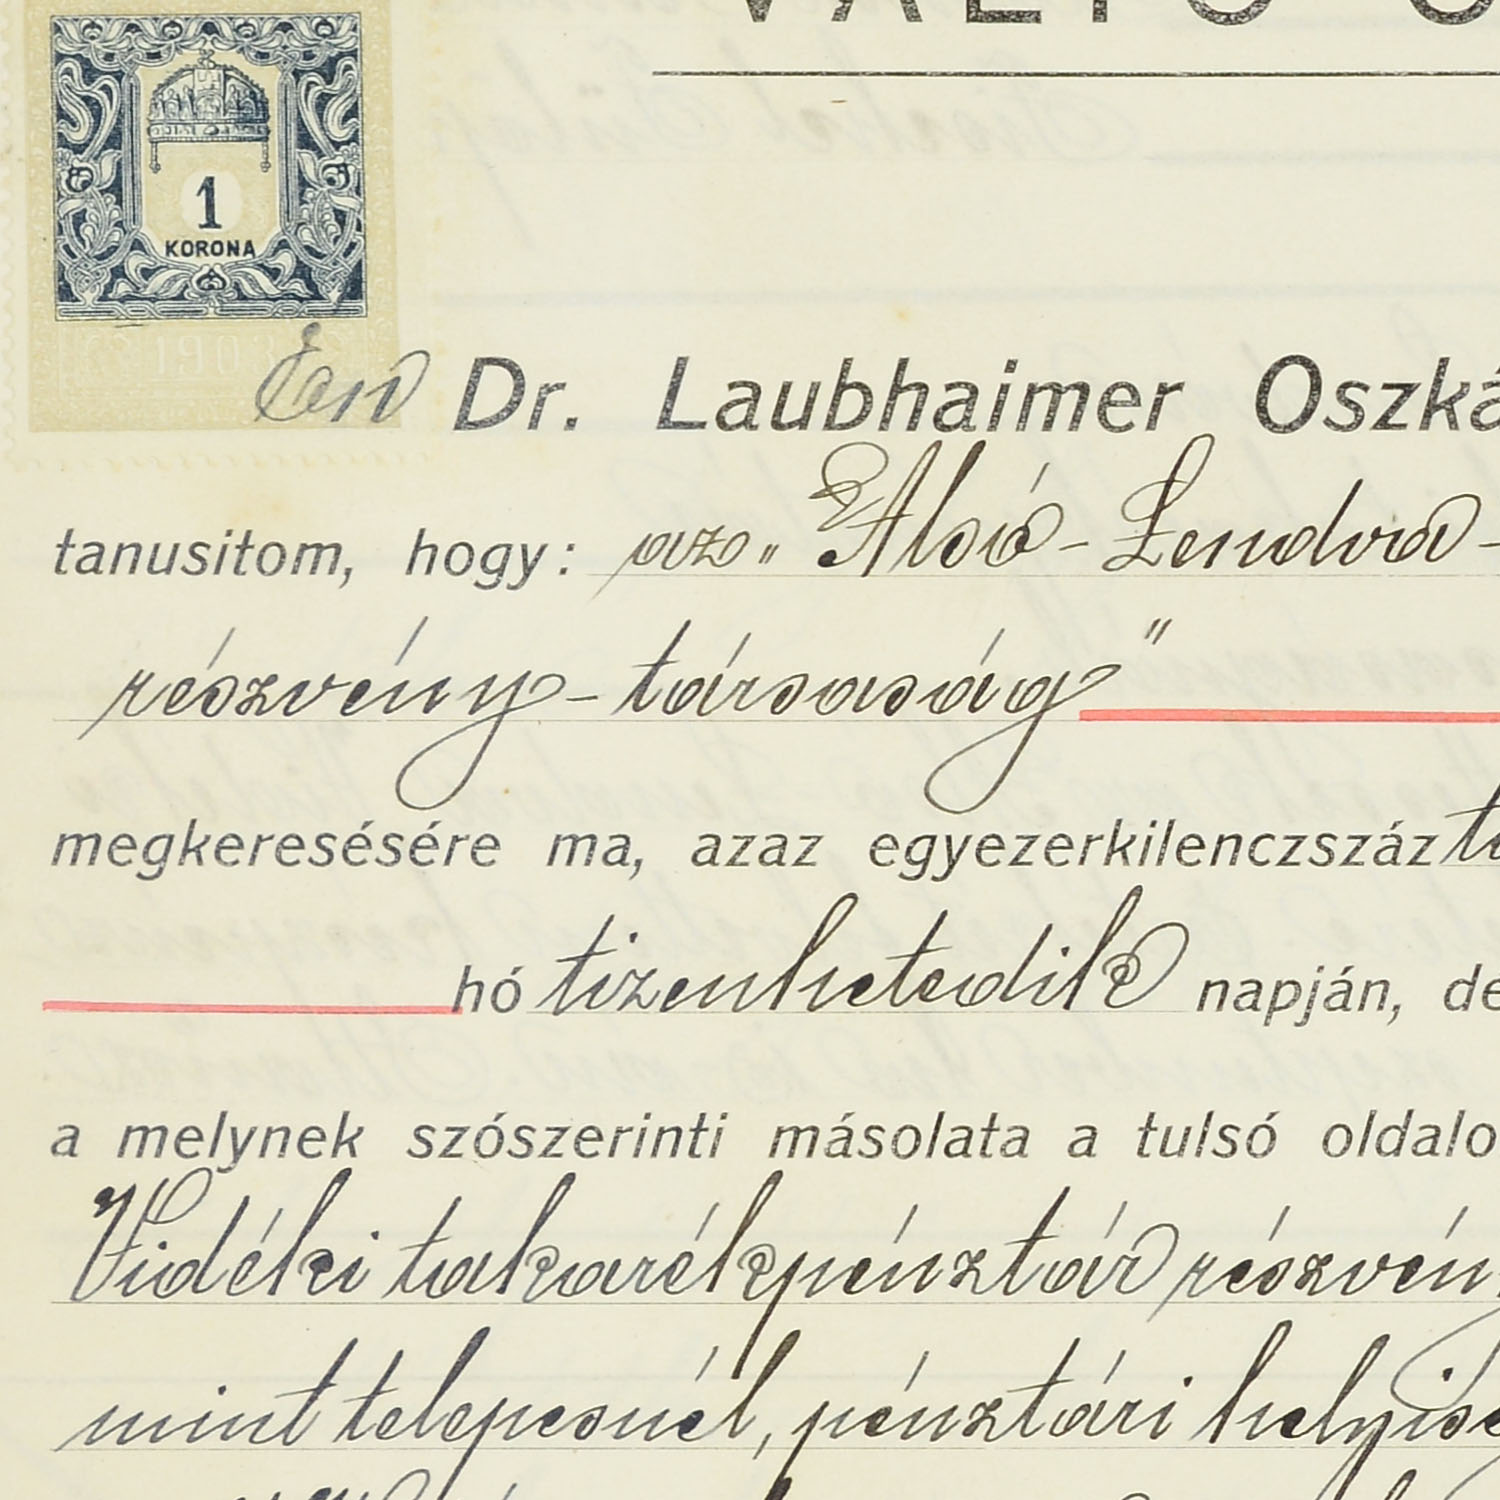 VÁLTÓ Ó
1
KORONA
1903
Én Dr. Laubhaimer Oszká
tanusitom, hogy: az „Alsó-Lendva-
részvény-társaság"
megkeresésére ma, azaz egyezerkilenczszáz
hó tizenhetedik napján, de
a melynek szószerinti másolata a tulsó oldalo
Vidéki takarékpénztár részvén
mint telepesnél, pénztári helyisé